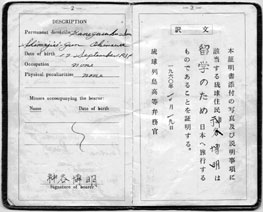 - 2 -
DESCRIPTION
Permanent domicile
Shimajiri-Gun Okinawa
Date of birth 17 September
Occupation none
Physical peculiarities none
Minors accompanying the bearer
Name Date of birth
Signature of bearer
- 3 -
訳文
本証明書添付の写真及び説明事項に
該当する琉球住民 は
留学のため 日本へ旅行する
ものであることを証明する。
一九六〇年 月 九日
琉球列島高等弁務官